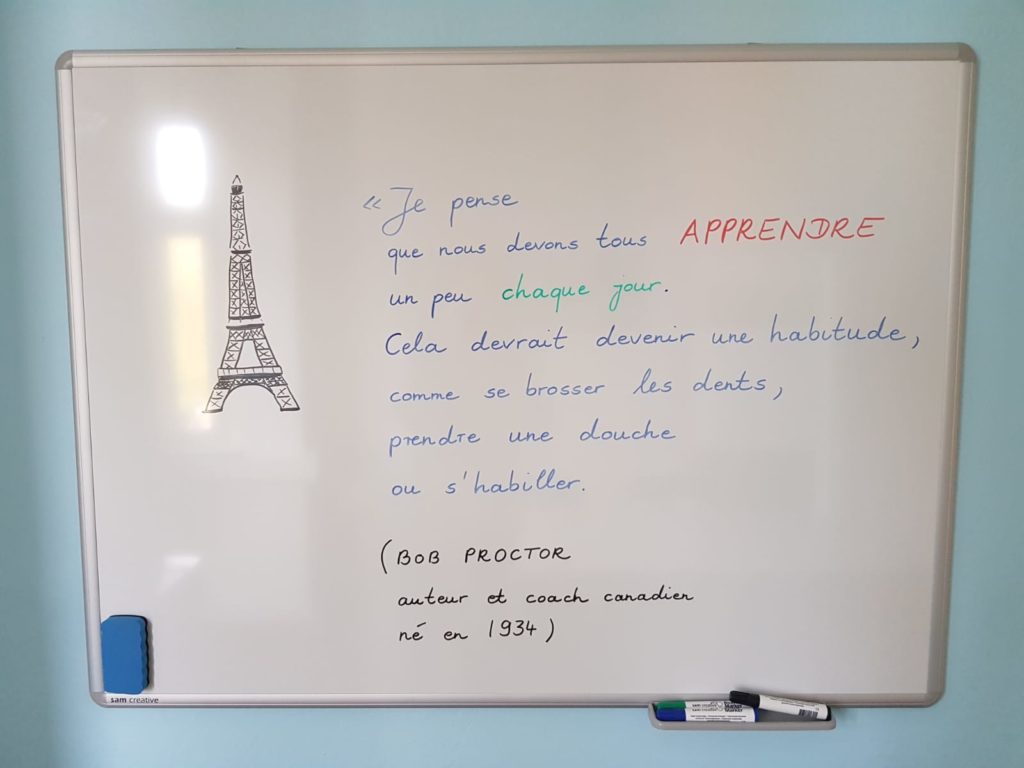 « Je pense
que nous devons tous APPRENDRE
un peu chaque jour.
Cela devrait devenir une habitude,
comme se brosser les dents,
prendre une douche
ou s'habiller.
(BOB PROCTOR
auteur et coach canadien
né en 1934)
sam creative